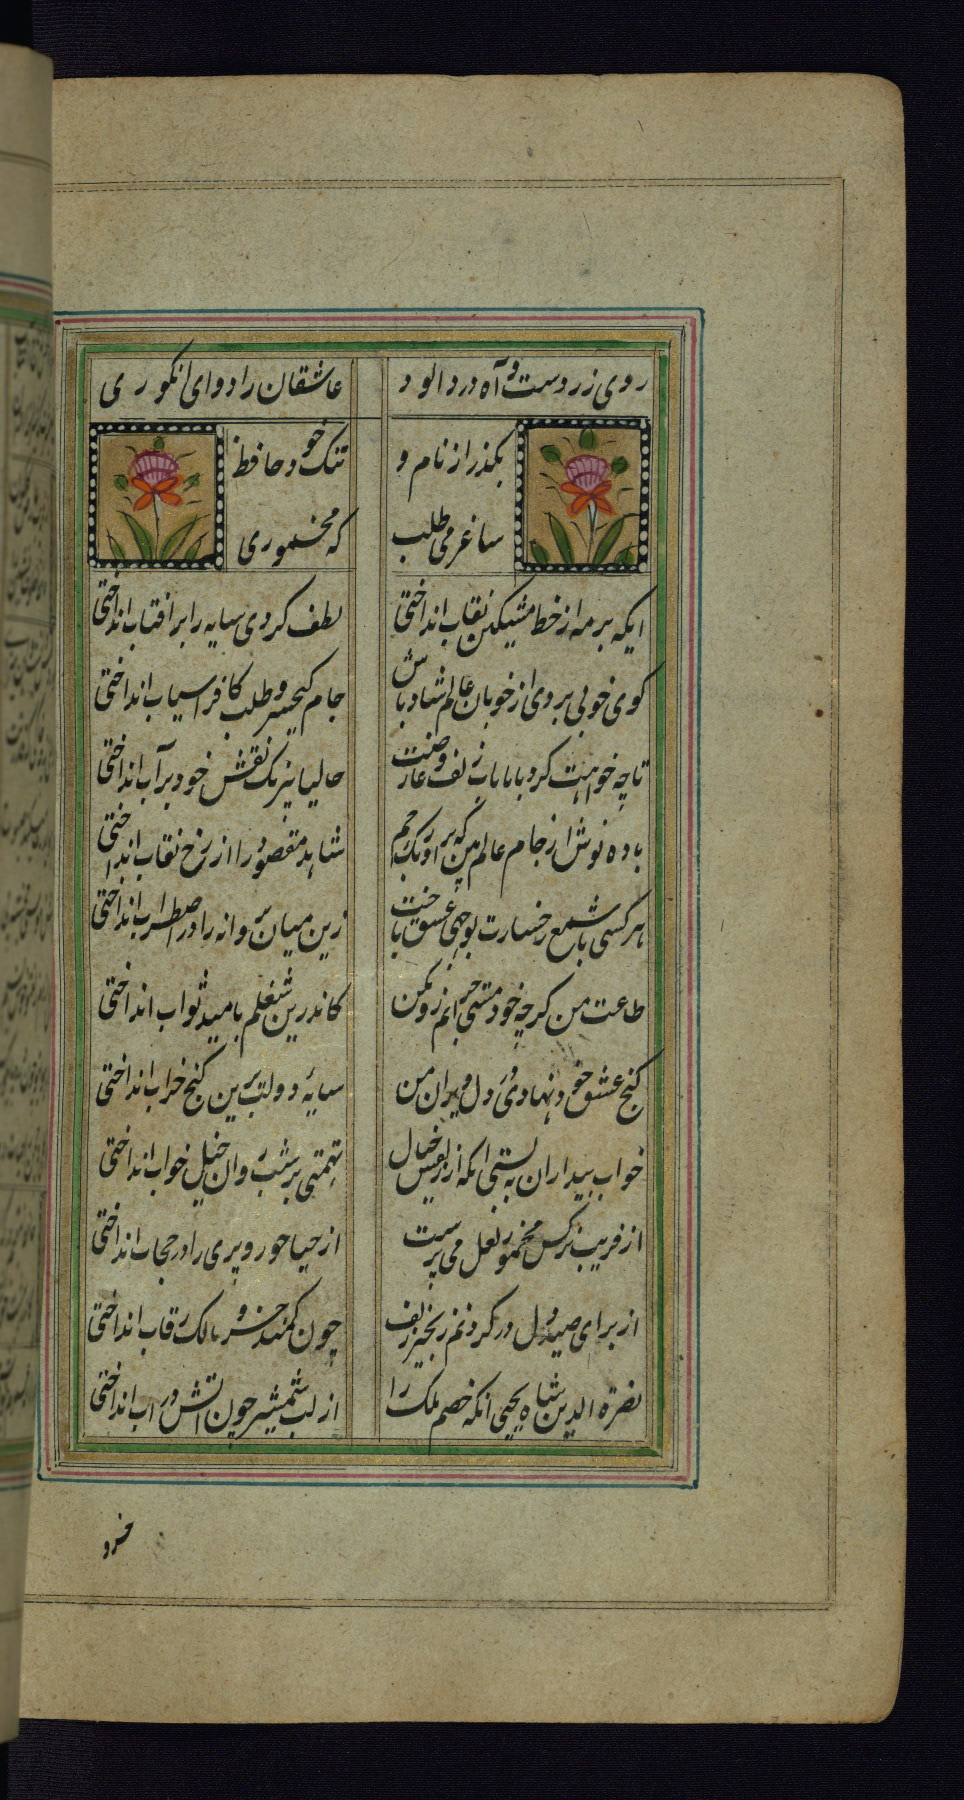 روی زردست و آه درد الود عاشقان را دوای رنجوری
بکذر از نام و ننک خود حافظ
ساغر می طلب که مخموری
ایکه بر مه از خط مشکین نقاب انداختی لطف کردی سایه را بر افتاب انداختی
کوی خوبی بردی از خوبان عالم شاد باش جام کیخسرو طلب کافراسیاب انداختی
تا چه خواهت کرد با ما باب زلف و عارضت حالیا نیرنک نقش خود بر آب انداختی
باده نوش از جام عالم بین که بر اورنک جم شاهد مقصود را از رخ نقاب انداختی
هر کسی با شمع رخسارت بوجهی عشق باخت زین میان پروانه را در اضطراب انداختی
طاعت من کرچه خود مستی خرابم رد مکن کاندرین شغلم بامید ثواب انداختی
کنج عشق خود نهادی در دل ویران من سایه دولت برین کنج خراب انداختی
خواب بیداران به بستی انکه از نقش خیال تهمتی بر شب روان خیل خواب انداختی
از فریب نرکس مخمور لعل می پرست از حیا حور و پری را در حجاب انداختی
از برای صید دل در کردنم زنجیر زلف چون کمند خسرو مالک رقاب انداختی
نصرة الدین شاه یحیی انکه خصم ملک را از لب شمشیر چون اتش در اب انداختی